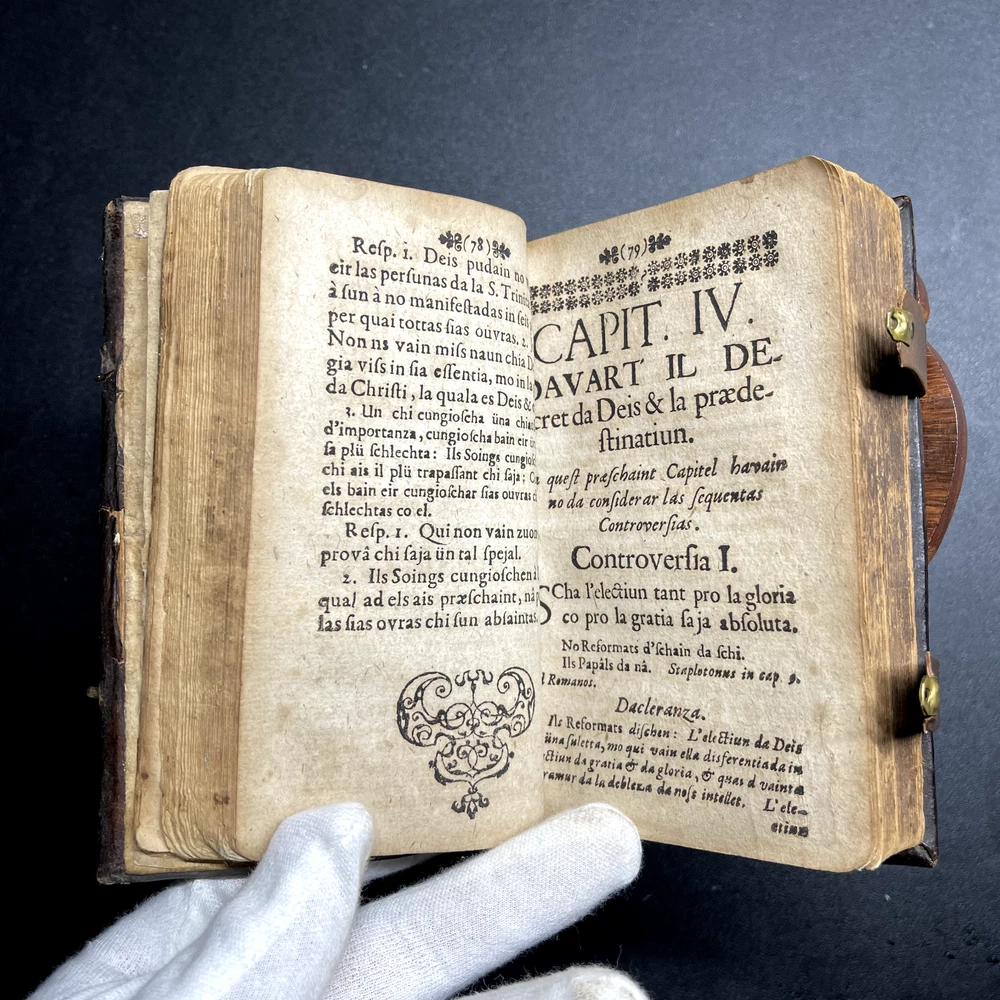 (78)
Reſp. 1. Deis pudain no
eir las perſunas da la S. Trini
à ſun à no manifeſtadas in ſeis
per quai tottas ſias oùvras. 2.
Non ns vain miſs naun chia D
gia viſs in ſia eſſentia, mo in la
da Chriſti, la quala es Deis &
3. Un chi cungioſcha üna chia
d'importanza, cungioſcha bain eir
ſa plü ſchlechta: Ils Soings cungio
chi ais il plü trapaſſant chi ſaja;
els bain eir cungioſchar ſias ouvras
ſchlechtas co el.
Reſp. 1. Qui non vain zuon
provâ chi ſaja ün tal ſpejal.
2. Ils Soings cungioſchen
qual ad els ais præſchaint, nâ
las ſias ovras chi ſun abſaintas.
(79)
CAPIT. IV.
DAVART IL DE-
cret da Deis & la præde-
ſtinatiun.
queſt præſchaint Capitel havain
no da conſiderar las ſequentas
Controverſias.
Controverſia I.
SCha l'electiun tant pro la gloria
co pro la gratia ſaja abſoluta.
No Reformats d'ſchain da ſchi.
Ils Papâls da nâ. Stapletonus in cap. 9.
Romanos.
Dacleranza.
Ils Reformats diſchen: L'electiun da Deis
üna ſuletta, mo qui vain ella disferentiada in
ctiun da gratia & da gloria, & quas d vainta
ramur da la debleza da noſs intellet. L'ele-
ctiun